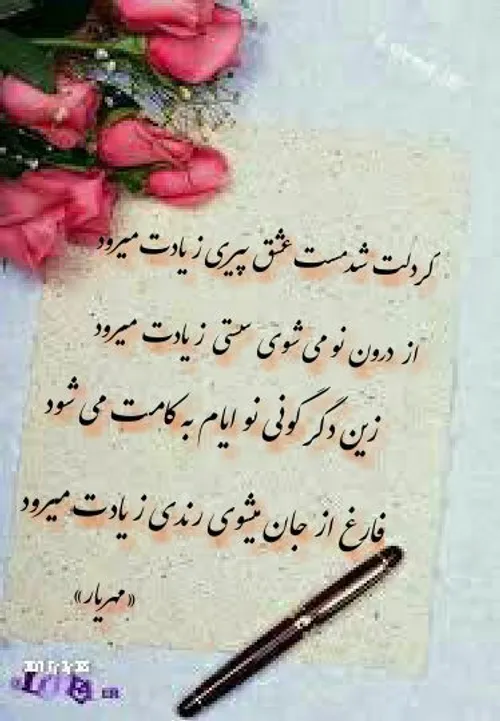 گر دلت شد مست عشق پیری ز یادت میرود
از درون نو می شوی سستی ز یادت میرود
زین دگر گونی نو ایام به کامت می شود
فارغ از جان میشوی رندی ز یادت میرود
«مهریار»